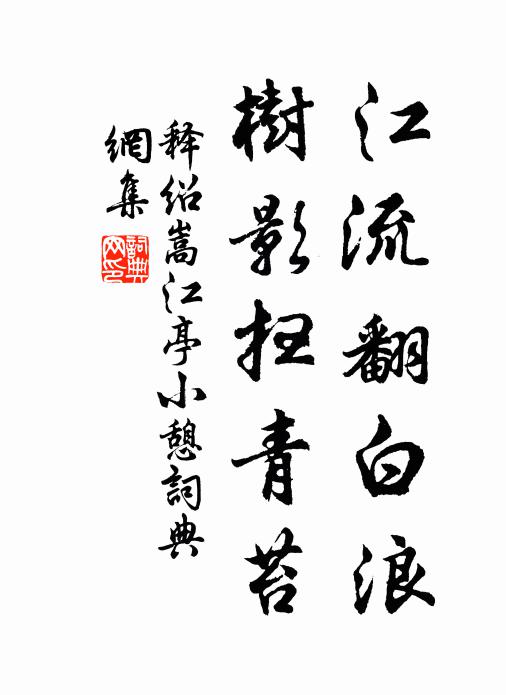 江流翻白浪
樹影扫青苔
释绍嵩江亭小憩詞典
網集
詞典网印